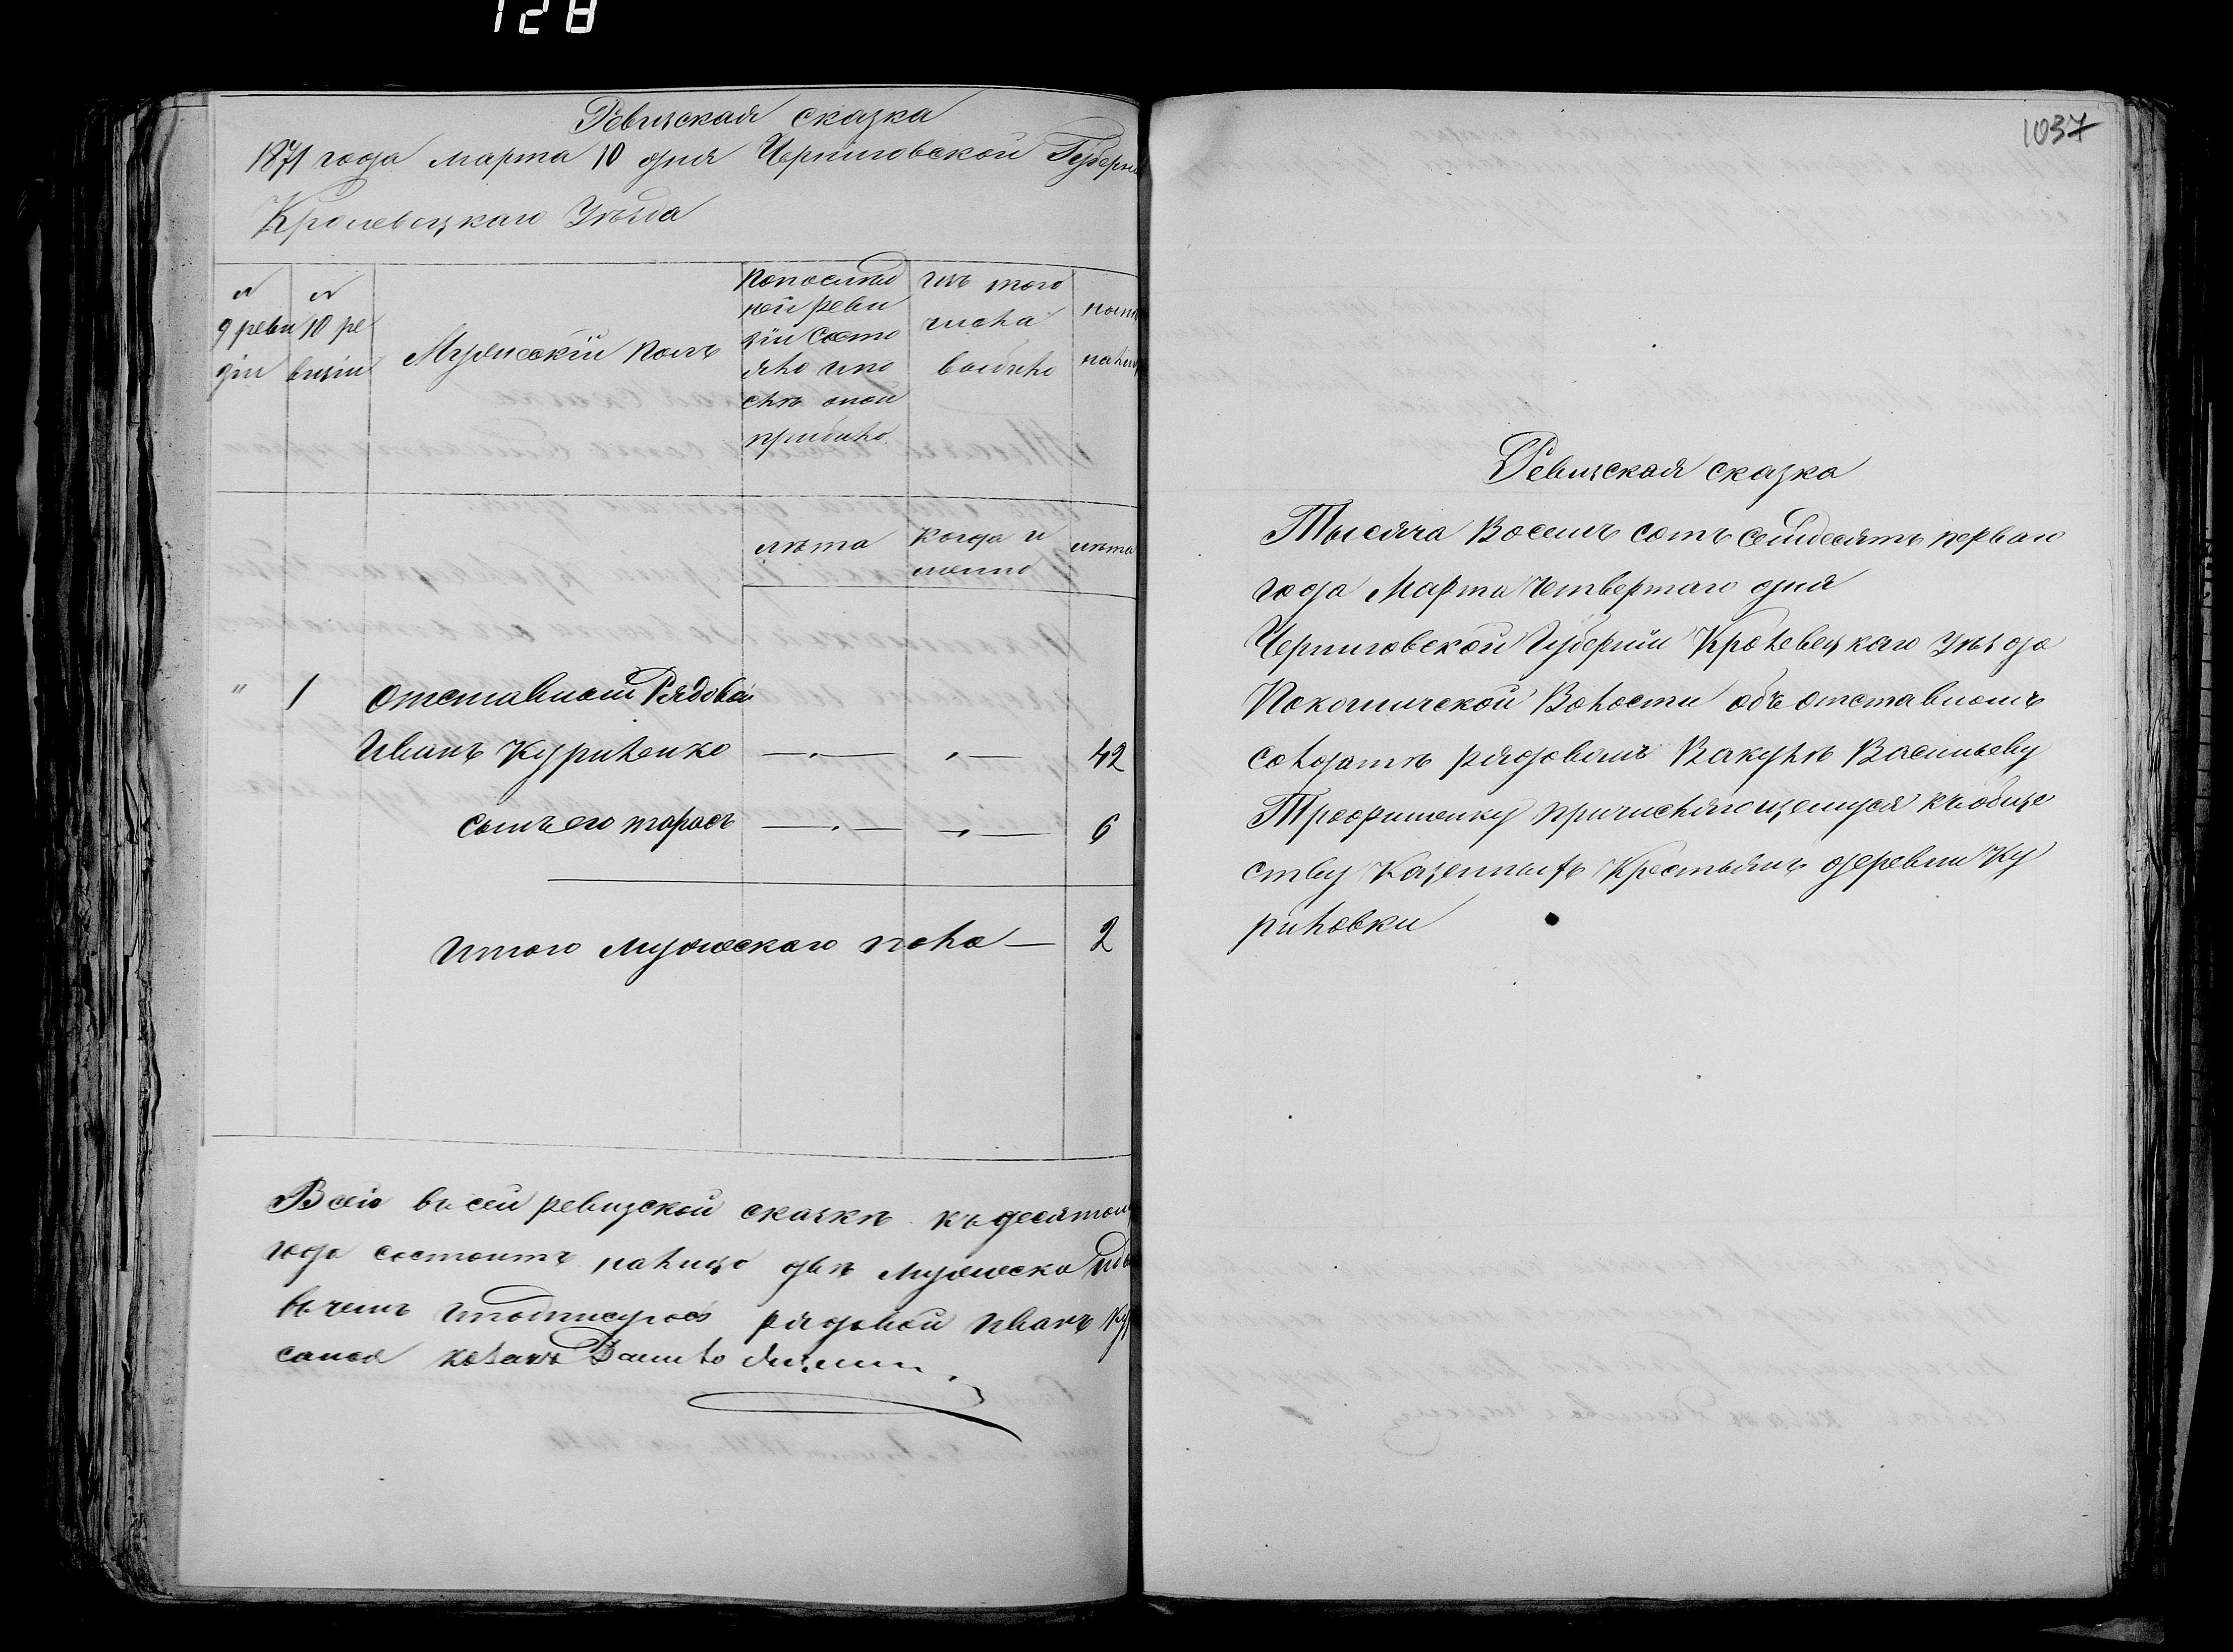 128
Ревизская сказка
1871 года марта 10 дня Черниговской Губерні
Кролевецкаго Уезда
№ 9 ревизіи
№ 10 ревизіи
Мужескій полъ
По последней ревизіи состояло и после оной прибыло
изъ того числа выбыло
лѣта
когда именно
лѣта
" 1 Отставной Рядовой
Иванъ Куриленко — — 42
сынъ его тарасъ — — 6
итого мужескаго пола — 2
Всего въ сей ревизской сказкѣ къ десятому
года состоитъ налицо двѣ мужеска
въ чемъ рядовой иванъ
козакъ Данило
1037
Ревизская сказка
Тысяча Восемь сотъ семдесятъ перваго
года Марта Четвертаго дня
Черниговской Губерніи Кролевецкаго уѣзда
Покошичской Волости объ отставномъ
солдатѣ рядовомъ Вакулѣ Васильеву
Трофименку причисляющемуся къ обще
ству Казенныхъ Крестьянъ деревни Ку
риловки